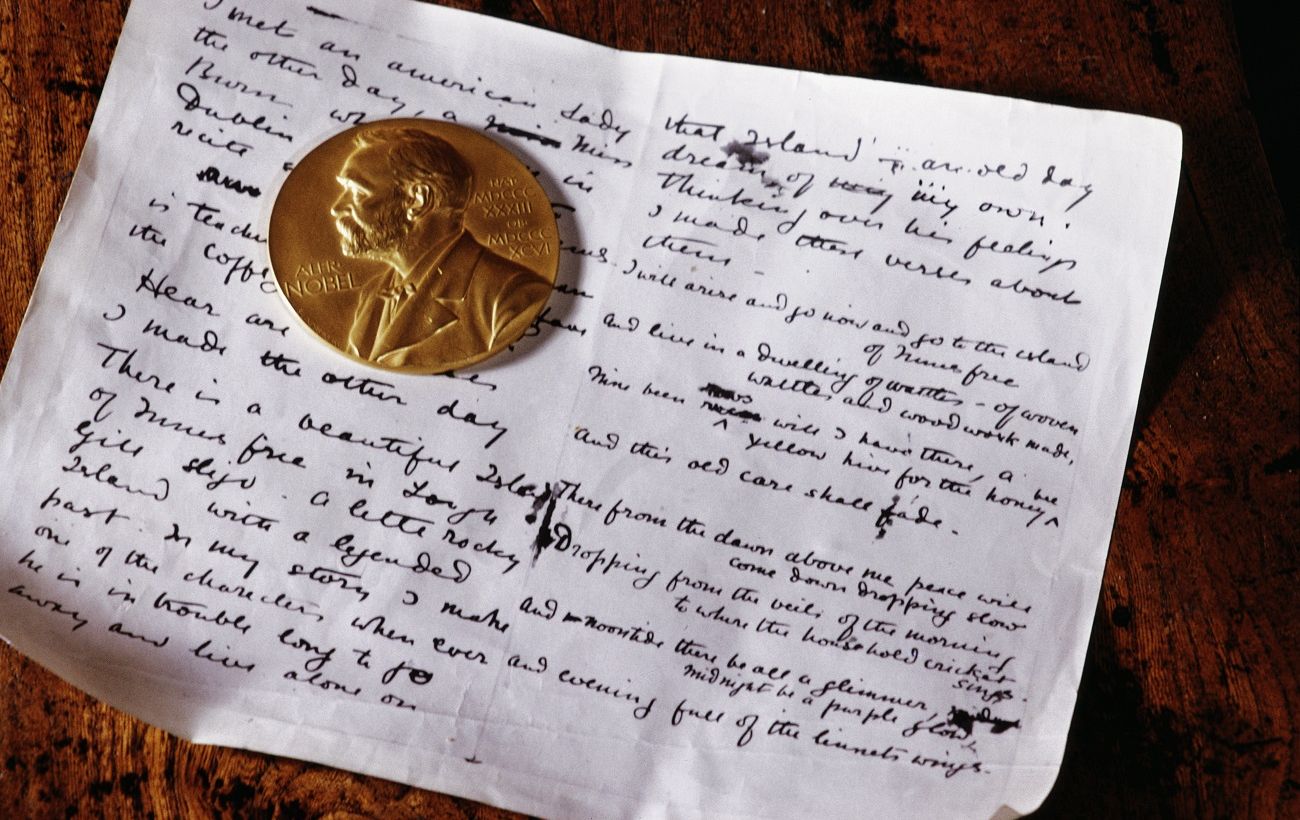 I met an american Lady
the other day, a Miss
Burn
Dublin
in
recite
is teach
the coffe
Hear are
I made the other day
There is a beautiful Island
of Innis free in Lough
Gill Sligo. A little rocky
Island with a legended
past. In my story I make
one of the characters when ever
he is in trouble long to go
away and live alone on
ALFR.
NOBEL
NAT.
MDCCC
XXXIII
OB.
MDCCC
XCVI
that Island — an old day
dream of my own.
Thinking over his feelings
I made these verses about
them —
I will arise and go now and go to the island
of Innis free
And live in a dwelling of wattles — of woven
wattles and wood work made,
Nine been rows will I have there, a
yellow hive for the honey bee
And this old care shall fade.
There from the dawn above me peace will
come down dropping slow
Dropping from the veils of the morning
to where the household cricket
sings.
And noontide there be all a glimmer,
midnight be a purple glow,
And evening full of the linnets wings.